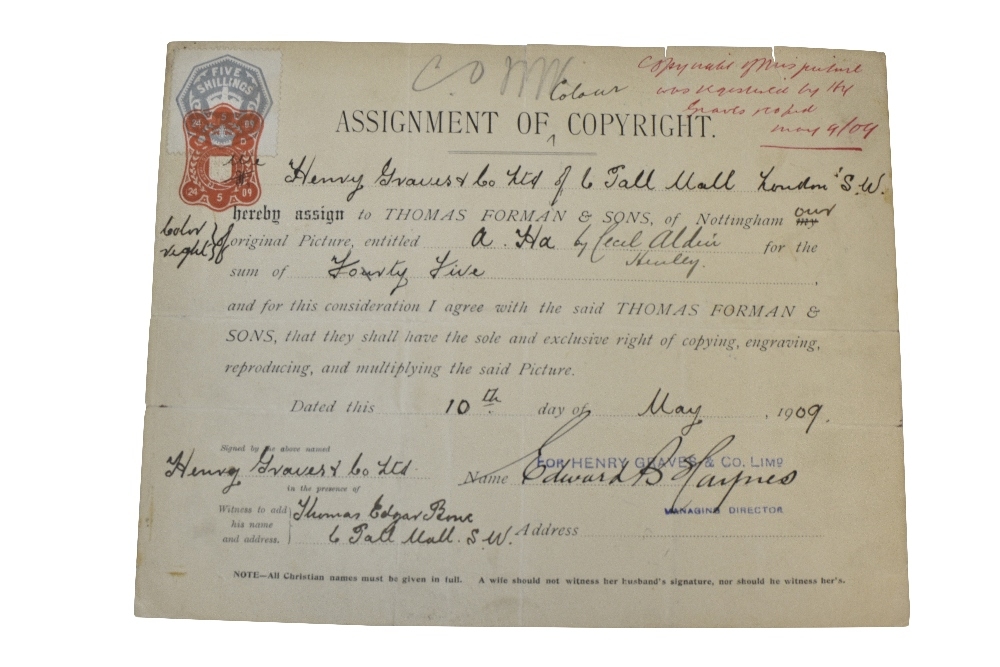 Colour
ASSIGNMENT OF ^ COPYRIGHT.
Copyright of this picture
was registered by Hy
Graves
may 9/09
FIVE
SHILLINGS
24 5 09
We
Henry Graves & Co Ltd of 6 Pall Mall London S.W.
hereby assign to THOMAS FORMAN & SONS, of Nottingham my our
Color right of
original Picture, entitled A. Ha by Cecil Aldin for the
Henley.
sum of Fourty Five
and for this consideration I agree with the said THOMAS FORMAN &
SONS, that they shall have the sole and exclusive right of copying, engraving,
reproducing, and multiplying the said Picture.
Dated this 10th day of May, 1909.
Signed by the above named
Henry Graves & Co Ltd
Name Edward B Haynes
FOR HENRY GRAVES & CO. LIMD
MANAGING DIRECTOR.
in the presence of
Witness to add his name and address.
Thomas Edgar Bone
6 Pall Mall. S.W.
Address
NOTE—All Christian names must be given in full. A wife should not witness her husband's signature, nor should he witness her's.